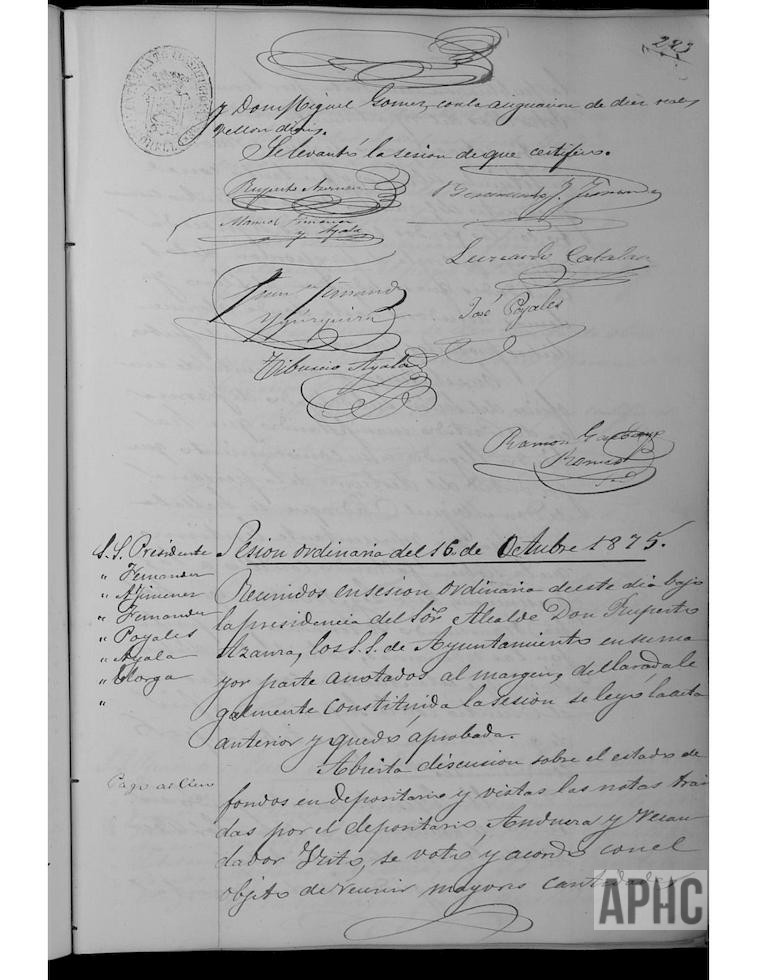 283
y Don Miguel Gomez, con la asignacion de diez reales
vellon diarios.
Se levantó la sesion de que certifico.
Ruperto
Manuel Jimenez
y Ayala
Leonardo Catalan
Juan Fernando
José Poyales
Tiburcio Ayala
Ramon
S.S. Presidente
" Fernandez
" Jimenez
" Fernandez
" Poyales
" Ayala
"
Sesion ordinaria del 16 de Octubre 1875.
Reunidos en sesion ordinaria de este dia bajo
la presidencia del Sor Alcalde Don Ruperto
los S.S. de Ayuntamiento en su ma
yor parte anotados al margen, declarada le
galmente constituida la sesion se leyó la acta
anterior y quedó aprobada.
Pago al
Abierta discusion sobre el estado de
fondos en depositaria y vistas las notas trai
das por el depositario y Recau
dador se votó y acordó con el
objeto de reunir mayores cantidades
APHC